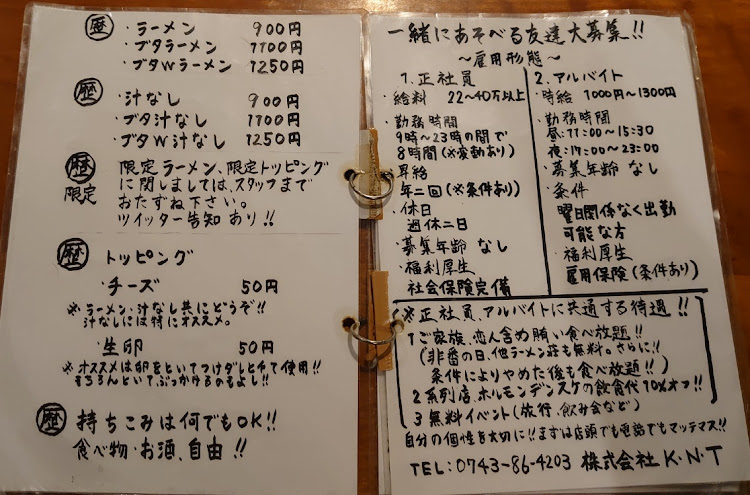 歴 ・ラーメン 900円
・ブタラーメン 1100円
・ブタWラーメン 1250円
歴 ・汁なし 900円
・ブタ汁なし 1100円
・ブタW汁なし 1250円
歴 限定 限定ラーメン、限定トッピング
に関しましては、スタッフまで
おたずね下さい。
ツイッター告知 あり!!
歴 トッピング
チーズ 50円
※ラーメン・汁なし共にどうぞ!!
汁なしには特にオススメ。
生卵 50円
※オススメは卵をといてつけダレとして使用!!
もちろんといて、ぶっかけるのもよし!!
歴 持ちこみは何でもOK!!
食べ物・お酒、自由!!
一緒にあそべる友達大募集!!
～雇用形態～
1.正社員
・給料 22～40万以上
・勤務時間
9時～23時の間で
8時間(※変動あり)
・昇給
年二回(※条件あり)
・休日
週休二日
・募集年齢 なし
・福利厚生
社会保険完備
2.アルバイト
・時給 1000円～1300円
・勤務時間
昼:11:00～15:30
夜:17:00～23:00
・募集年齢 なし
・条件
曜日関係なく出勤
可能な方
・福利厚生
雇用保険(条件あり)
※正社員、アルバイトに共通する待遇!!
1 ご家族、恋人含め賄い食べ放題!!
(非番の日、他ラーメン荘も無料。さらに!!
条件によりやめた後も食べ放題!!)
2 系列店、ホルモンデンスケの飲食代10%オフ!!
3 無料イベント(旅行、飲み会など)
自分の個性を大切に!!まずは店頭でも電話でもマッテマス!!
TEL:0743-86-4203 株式会社K・N・T